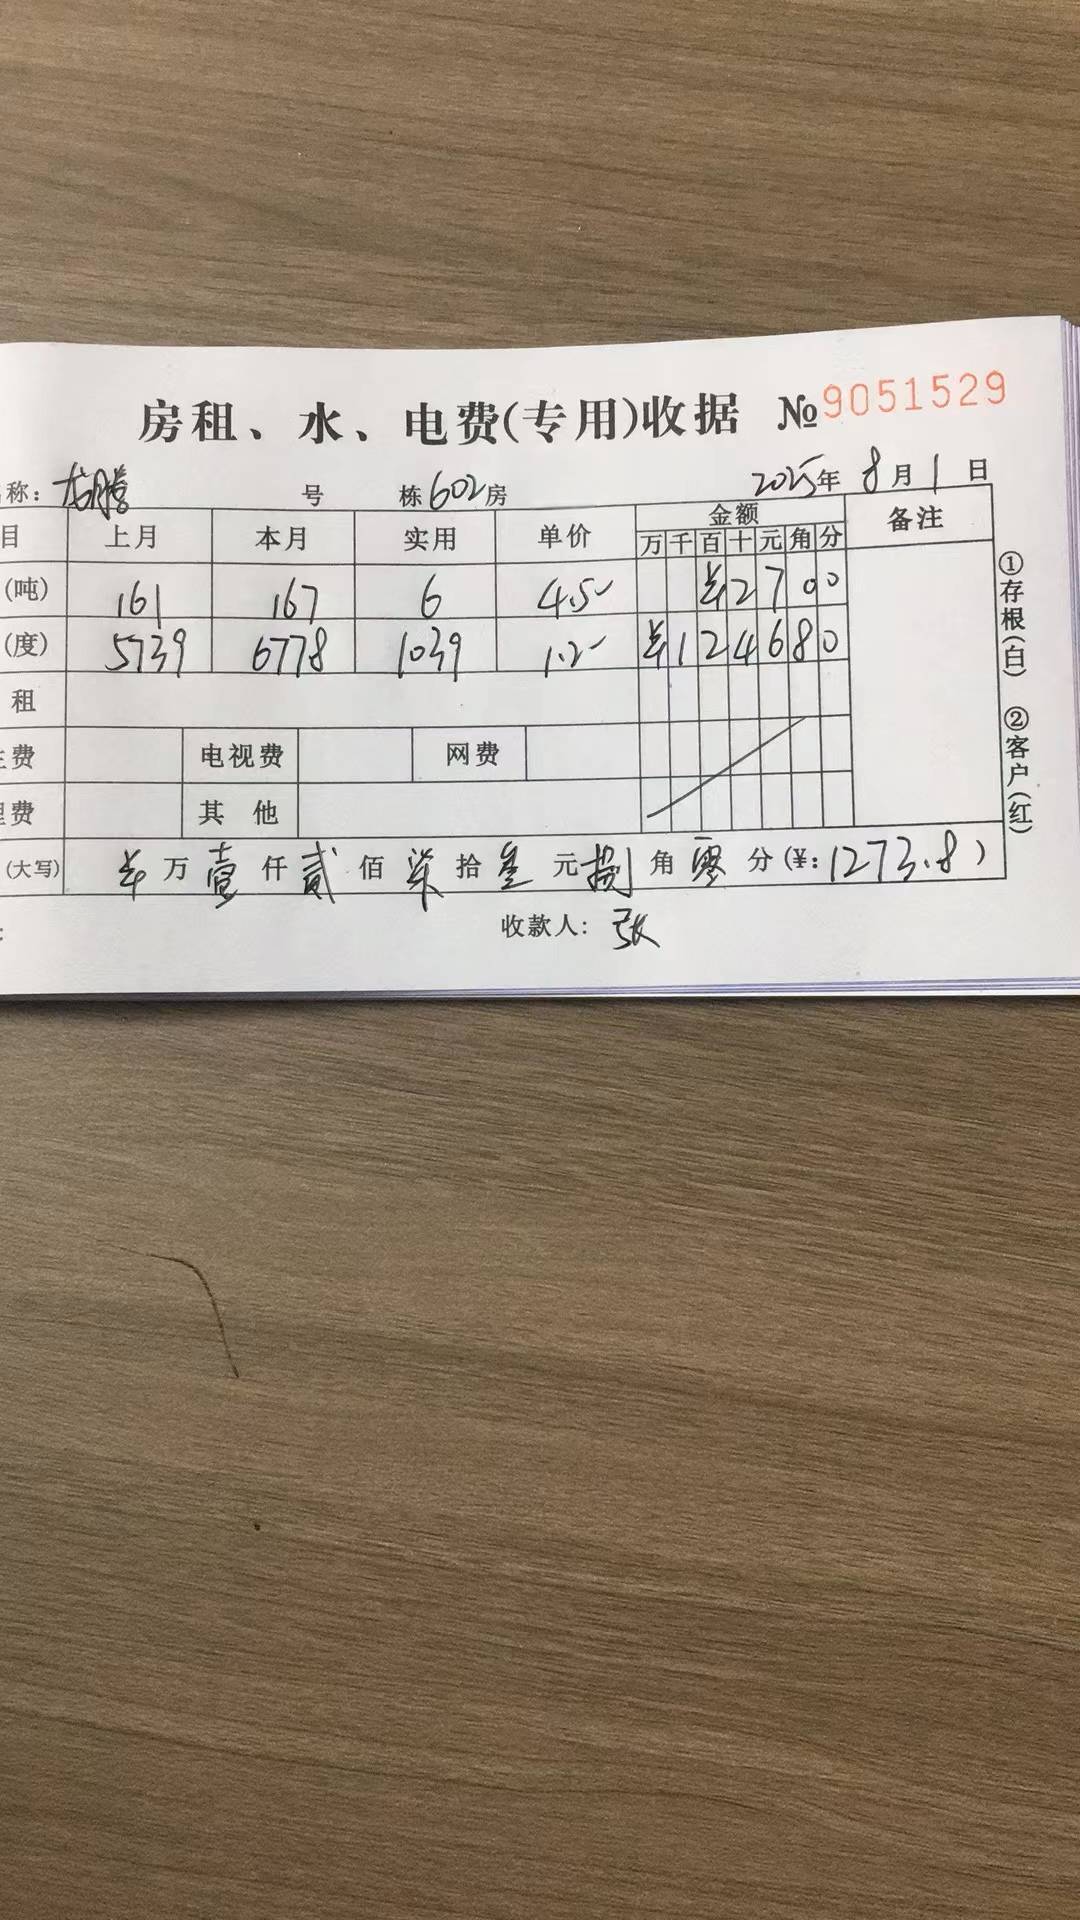 房租、水、电费(专用)收据 №9051529
称：龙腾 号 栋602房 2025年8月1日
目 上月 本月 实用 单价 金额 备注
万 千 百 十 元 角 分
(吨) 161 167 6 4.5 ¥ 2 7 0 0
(度) 5739 6778 1039 1.2 ¥ 1 2 4 6 8 0
租
费 电视费 网费
理费 其 他
(大写) 万 壹 仟 贰 佰 柒 拾 叁 元 捌 角 零 分(¥: 1273.8)
收款人: 张
①存根(白) ②客户(红)